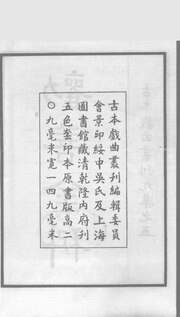 古本戲曲叢刊編輯委員
會景印綏中吳氏及上海
圖書館藏清乾隆內府刊
五色套印本原書版高二
〇九毫米寬一四九毫米